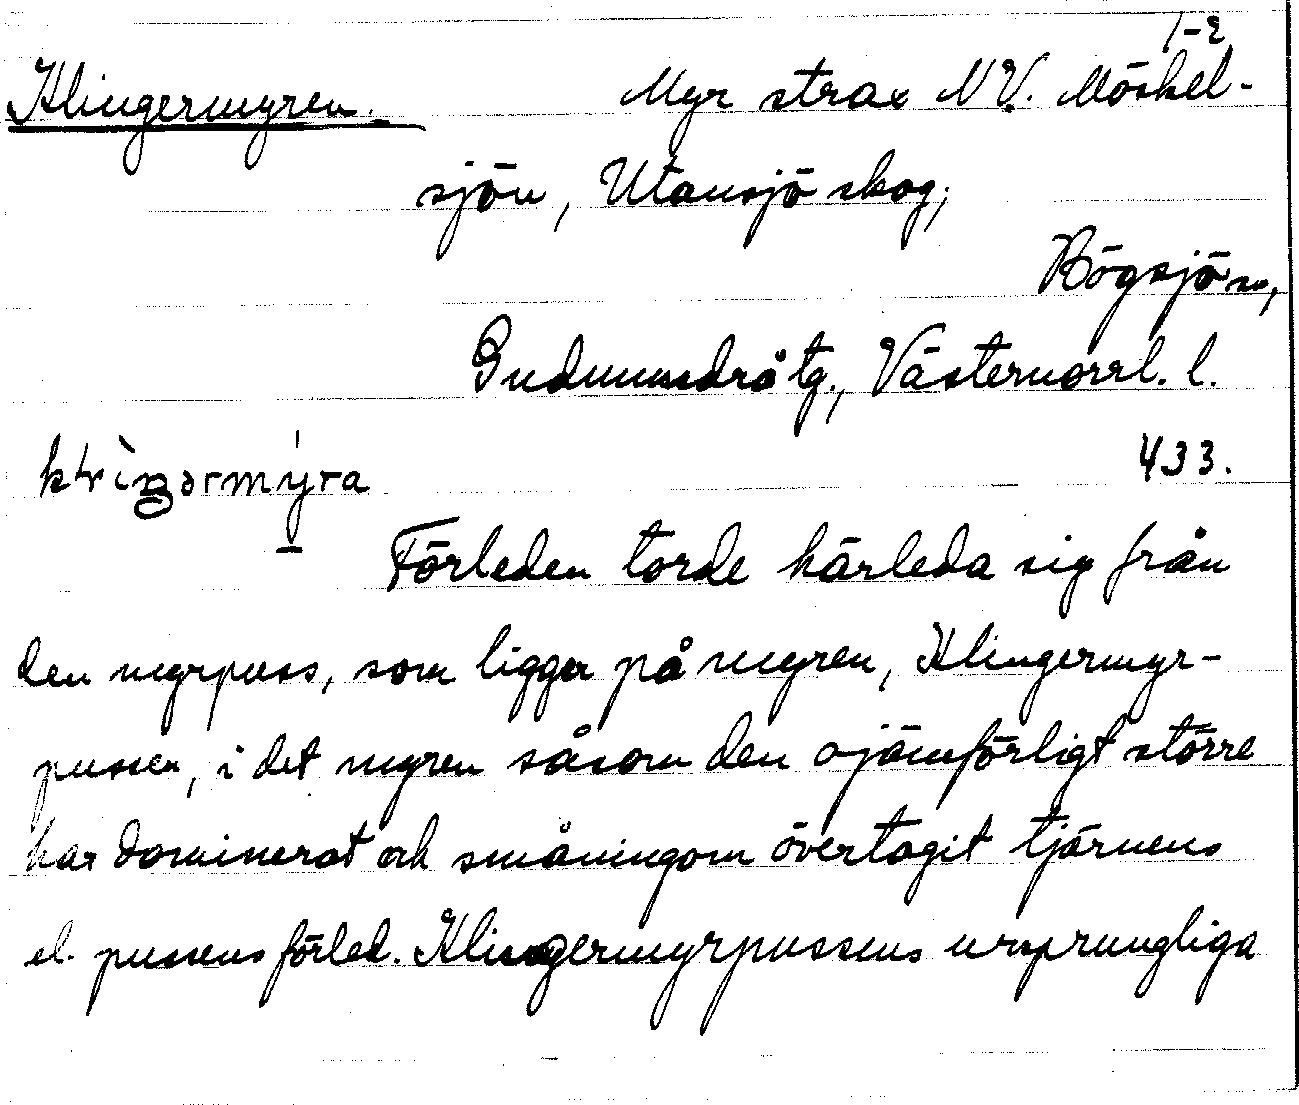 1-2
Klingermyren. Myr strax NV. Möskel-
sjön, Utansjö skog,
Högsjö sn,
Gudmundrå tg., Västernorrl. l.
433.
Förleden torde härleda sig från
den myrpuss, som ligger på myren, Klingermyr-
pussen, i det myren såsom den ojämförligt större
har dominerat och småningom övertagit tjärnens
el. pussens förled. Klingermyrpussens ursprungliga